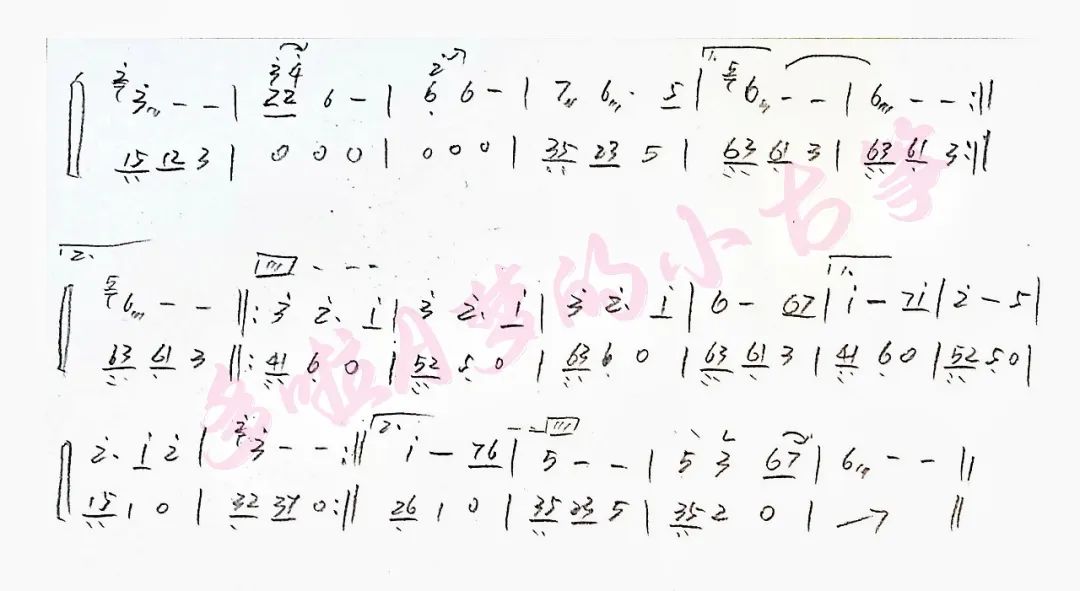 3 - - | 22 6 - | 6 6 - | 7 6 · 5 | 6 - - | 6 - - :||
15 12 3 | 0 0 0 | 0 0 0 | 35 23 5 | 63 61 3 | 63 61 3 :||
6 - - ||: 3 2· 1 | 3 2· 1 | 3 2· 1 | 6 - 67 | 1 - 71 | 2 - 5 |
63 61 3 ||: 41 6 0 | 52 5 0 | 63 6 0 | 63 61 3 | 41 6 0 | 52 5 0 |
2· 1 2 | 3 - - :|| 1 - 76 | 5 - - | 5 3 67 | 6 - - ||
15 1 0 | 32 37 0 :|| 26 1 0 | 35 23 5 | 35 2 0 | → ||
哆啦A梦的小古筝